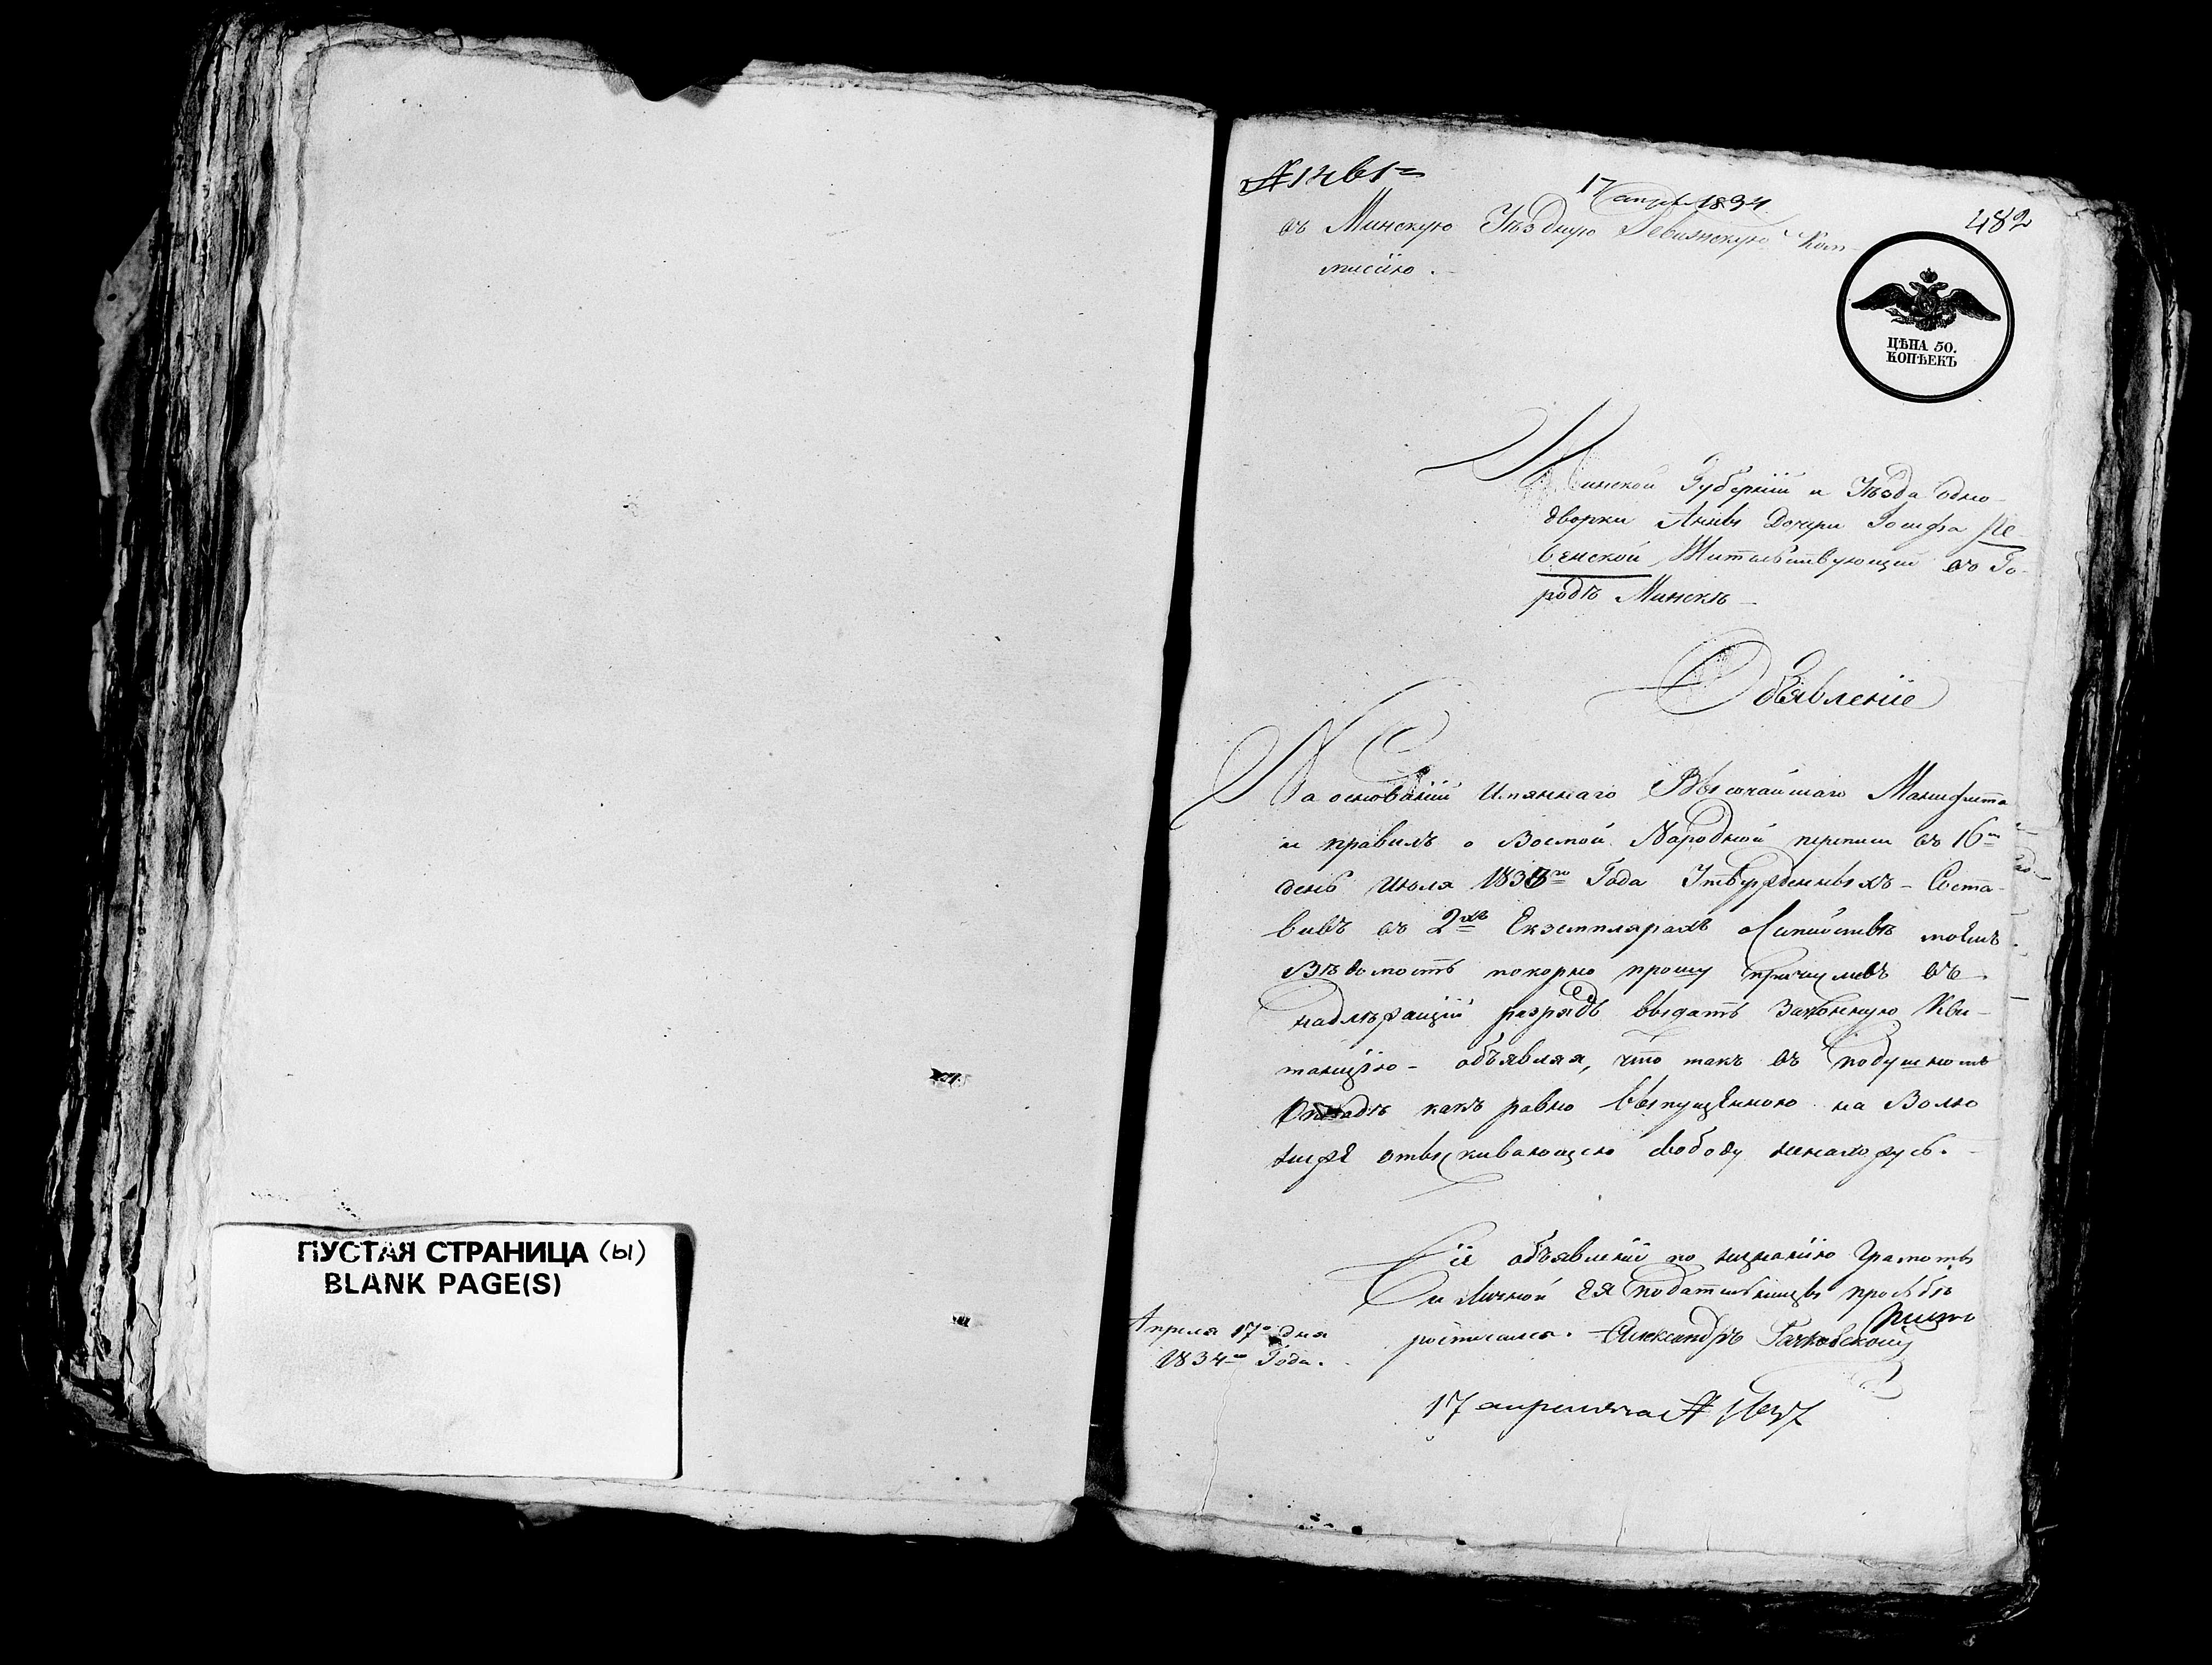 ПУСТАЯ СТРАНИЦА (ы)
BLANK PAGE(S)
17 апреля 1834
482
въ Минскую Уѣздную Ревизскую Ком-
мисію.
ЦѢНА 50.
КОПѢЕКЪ
Минской Губерніи и Уѣзда одно-
дворки Анны Дочери Іосифа Ле
венской Жительствующей въ Го-
родѣ Минскѣ
Объявленіе
На основаніи Имяннаго Высочайшаго Манифеста
и правилъ о Восмой Народной переписи въ 16й
день Июля 1833го Года Утвержденныхъ - Соста-
вивъ въ 2хъ Екземплярахъ о Симействѣ моемъ
Вѣдомость покорно прошу причисливъ въ
надлѣжащій разрядъ выдать Законную Кви-
танцію - объявляя, что какъ въ подушномъ
Окладѣ какъ равно выпущенною на Волю
ниже отыскивающею свободу ненахожусь.
Сіе объявленіе по незнанію Грамоты
и личной ея подательницы прозьбѣ
росписался. Александръ Гачковскій
Апреля 17го дня
1834го Года.
17 апреля № 1637